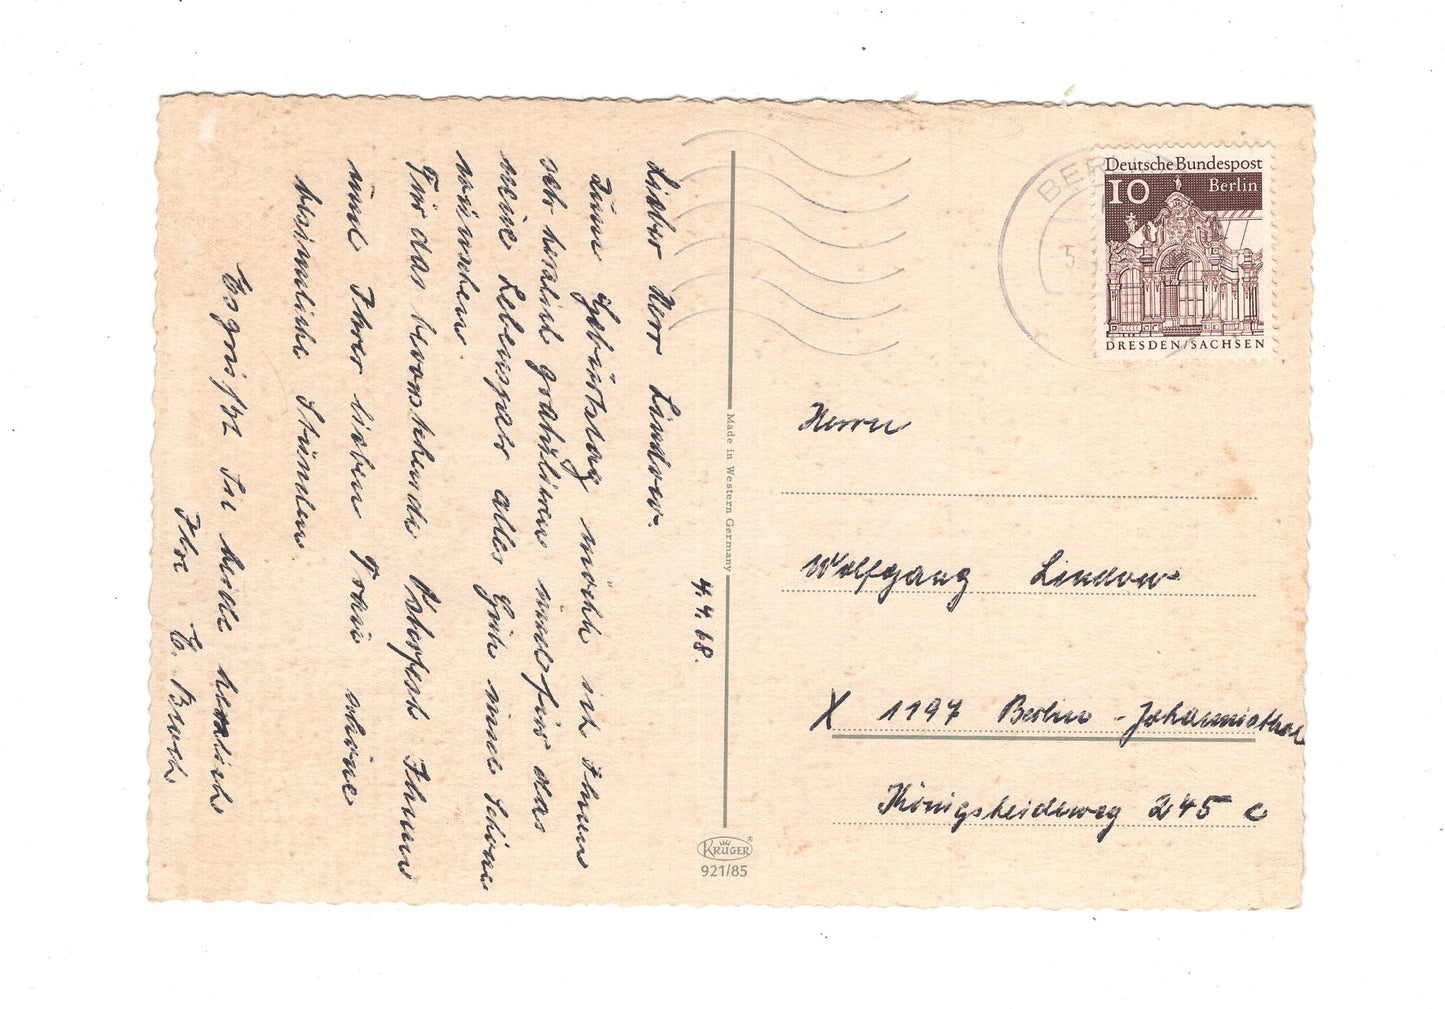 4.4.68.
Lieber Herr Lindow.
Zum Geburtstag möchte ich Ihnen
sehr herzlich gratulieren und für das
neue Lebensjahr alles Gute und Schöne
wünschen.
Für das bevorstehende Osterfest Ihnen
und Ihrer lieben Frau schöne
besinnliche Stunden.
Es grüßt Sie beide herzlich
Ihre E.
Made in Western Germany
KRÜGER®
921/85
BER
5.
Deutsche Bundespost
10 Berlin
DRESDEN/SACHSEN
Herrn
Wolfgang Lindow
X 1197 Berlin-Johannisthal
Königsheideweg 245 c